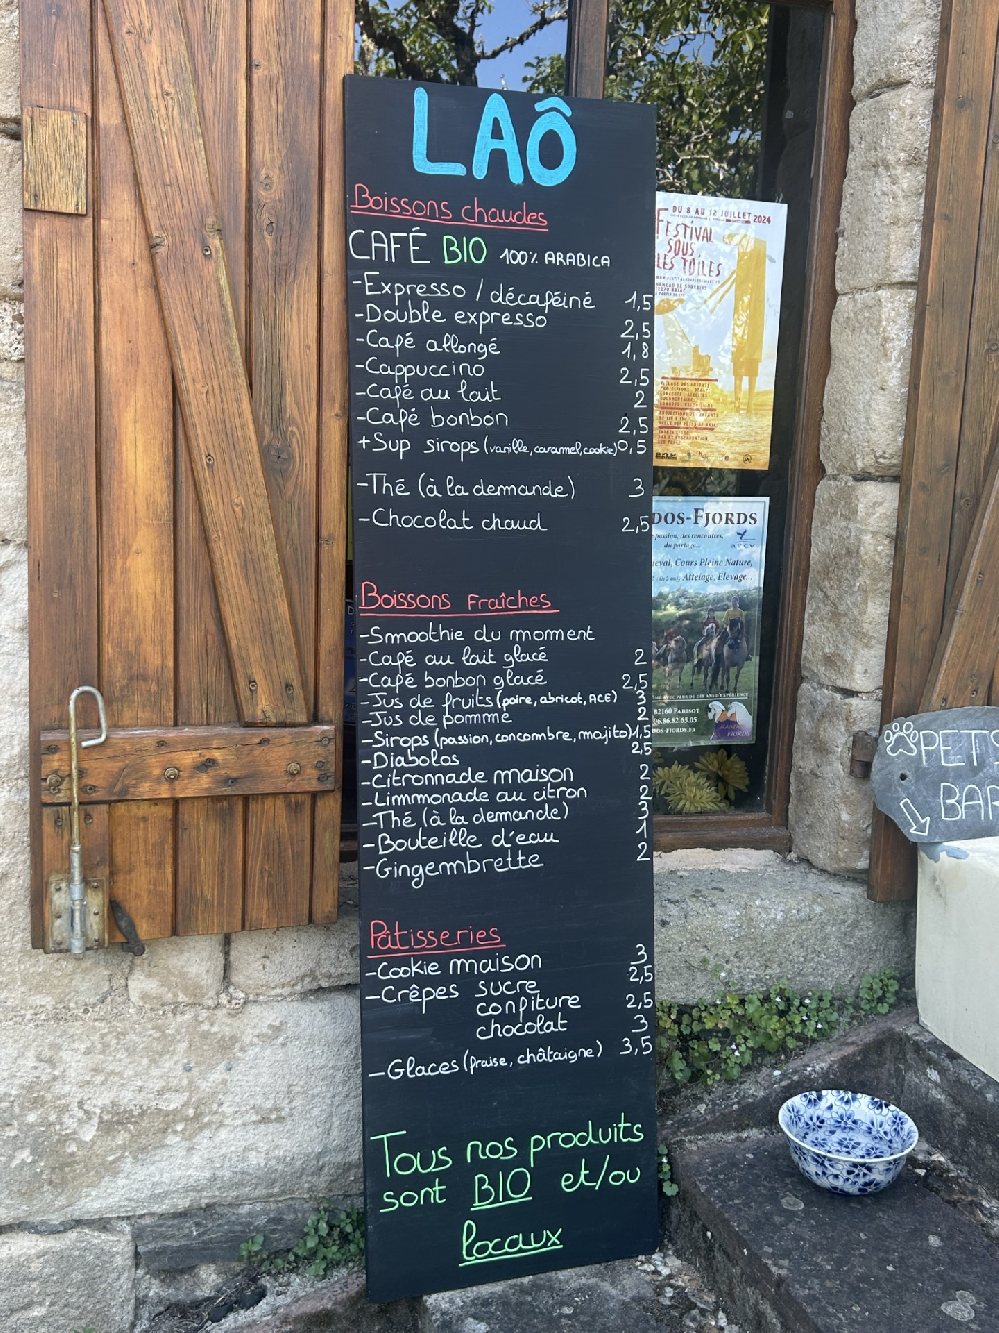 LAÔ
Boissons chaudes
CAFÉ BIO 100% ARABICA
-Expresso / décaféiné 1,5
-Double expresso 2,5
-Café allongé 1,8
-Cappuccino 2,5
-Café au lait 2
-Café bonbon 2,5
+Sup sirops (vanille, caramel, cookie) 0,5
-Thé (à la demande) 3
-Chocolat chaud 2,5
Boissons Fraîches
-Smoothie du moment
-Café au lait glacé 2
-Café bonbon glacé 2,5
-Jus de fruits (poire, abricot, ACE) 3
-Jus de pomme 2
-Sirops (passion, concombre, mojito) 1,5
-Diabolos 2,5
-Citronnade maison 2
-Limmonade au citron 2
-Thé (à la demande) 3
-Bouteille d'eau 1
-Gingembrette 2
Pâtisseries
-Cookie maison 3
-Crêpes sucre 2,5
confiture 2,5
chocolat 3
-Glaces (fraise, châtaigne) 3,5
Tous nos produits
sont BIO et/ou
locaux
DU 8 AU 12 JUILLET 2024
FESTIVAL
SOUS
LES TOILES
DOS-FJORDS
passion, des rencontres,
du partage...
Cours Pleine Nature,
Attelage, Elevage...
82160 PARISOT
06.86.82.65.05
PETS
BAR